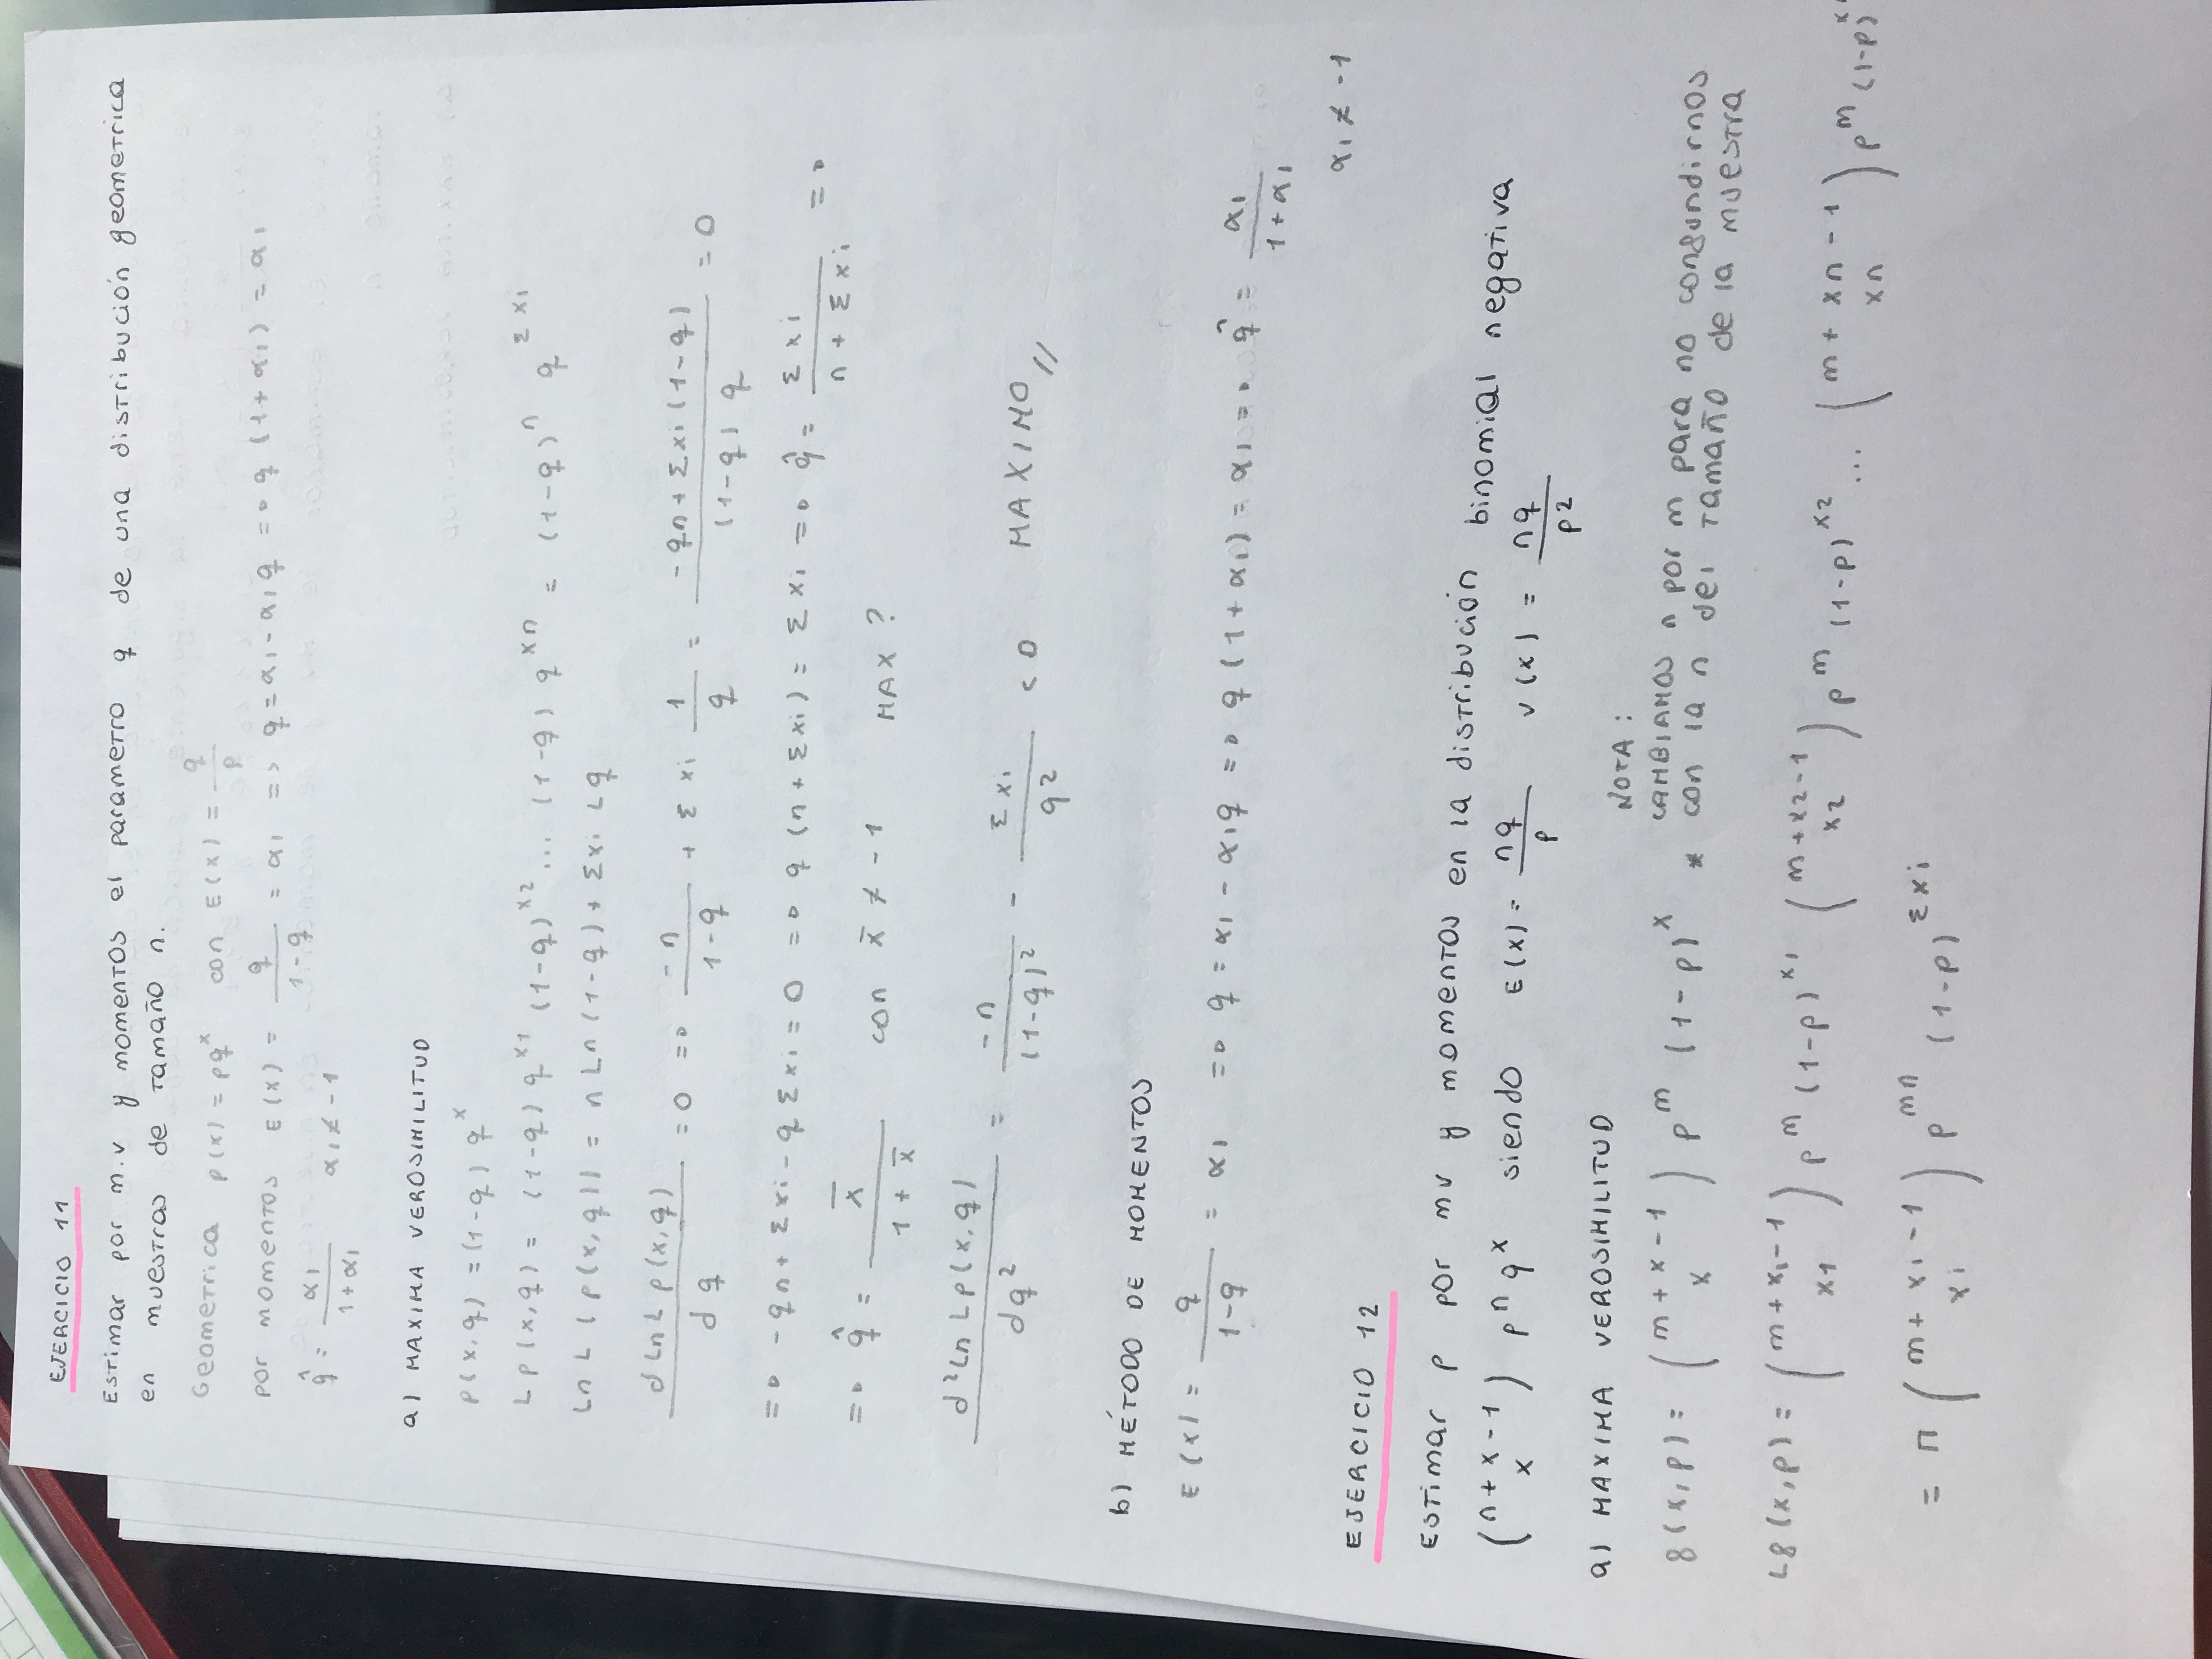 EJERCICIO 11
Estimar por m.v y momentos el parametro q de una distribución geometrica
en muestras de tamaño n.
Geometrica p(x) = pq^x con E(x) = q/p
por momentos E(x) = q/(1-q) = α1 => q = α1 - α1q => q (1+α1) = α1
q̂ = α1/(1+α1) α1 ≠ -1
a) MAXIMA VEROSIMILITUD
p(x,q) = (1-q) q^x
L p(x,q) = (1-q) q^x1 (1-q)^x2 ... (1-q) q^xn = (1-q)^n q^Σxi
Ln L (p(x,q)) = n Ln (1-q) + Σxi Lq
d Ln L p(x,q)/dq = 0 => -n/(1-q) + Σxi 1/q = (-qn + Σxi (1-q))/((1-q) q) = 0
=> -qn + Σxi - qΣxi = 0 => q (n + Σxi) = Σxi => q̂ = Σxi/(n + Σxi) =>
=> q̂ = x̄/(1 + x̄) con x̄ ≠ -1 MAX?
d²Ln L p(x,q)/dq² = -n/(1-q)² - Σxi/q² < 0 MAXIMO//
b) MÉTODO DE MOMENTOS
E(x) = q/(1-q) = α1 => q = α1 - α1q => q (1+α1) = α1 => q̂ = α1/(1+α1)
α1 ≠ -1
EJERCICIO 12
Estimar p por mv y momentos en la distribución binomial negativa
(n+x-1 x) p^n q^x siendo E(x) = nq/p v(x) = nq/p²
a) MAXIMA VEROSIMILITUD
NOTA:
f(x,p) = (m+x-1 x) p^m (1-p)^x * CAMBIAMOS n por m para no confundirnos
con la n del tamaño de la muestra
Lf(x,p) = (m+x1-1 x1) p^m (1-p)^x1 (m+x2-1 x2) p^m (1-p)^x2 ... (m+xn-1 xn) p^m (1-p)^x
= π (m+xi-1 xi) p^mn (1-p)^Σxi